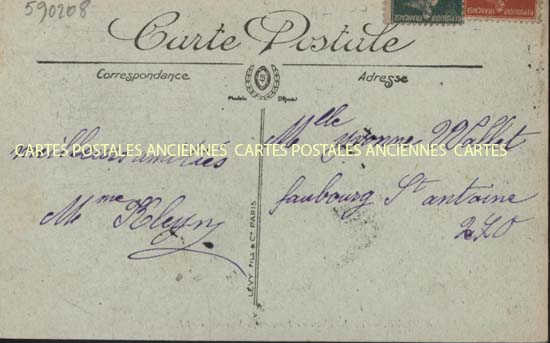 590208
Carte Postale
Correspondance
Adresse
Modèle Déposé
REPUBLIQUE FRANÇAISE
REPUBLIQUE FRANÇAISE
CARTES POSTALES ANCIENNES CARTES POSTALES ANCIENNES CARTES
meilleurs amitiés
Mme
Mlle Yvonne
faubourg St antoine
270
LÉVY FILS & Cie PARIS